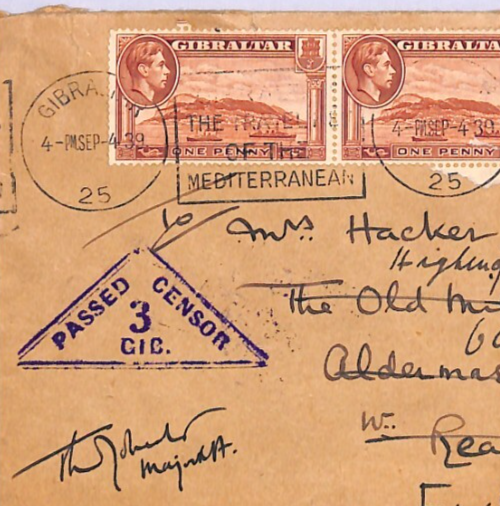 GIBRALTAR GIBRALTA
ONE PENNY ONE PENNY
GIBRALTAR
4-PM SEP-4 39
25
THE TRAVEL
OF THE
MEDITERRANEAN
4-PM SEP-4 39
25
to
Mrs Hacker
The Old
Aldermas
Rea
PASSED CENSOR
3
GIB.
Major RA.